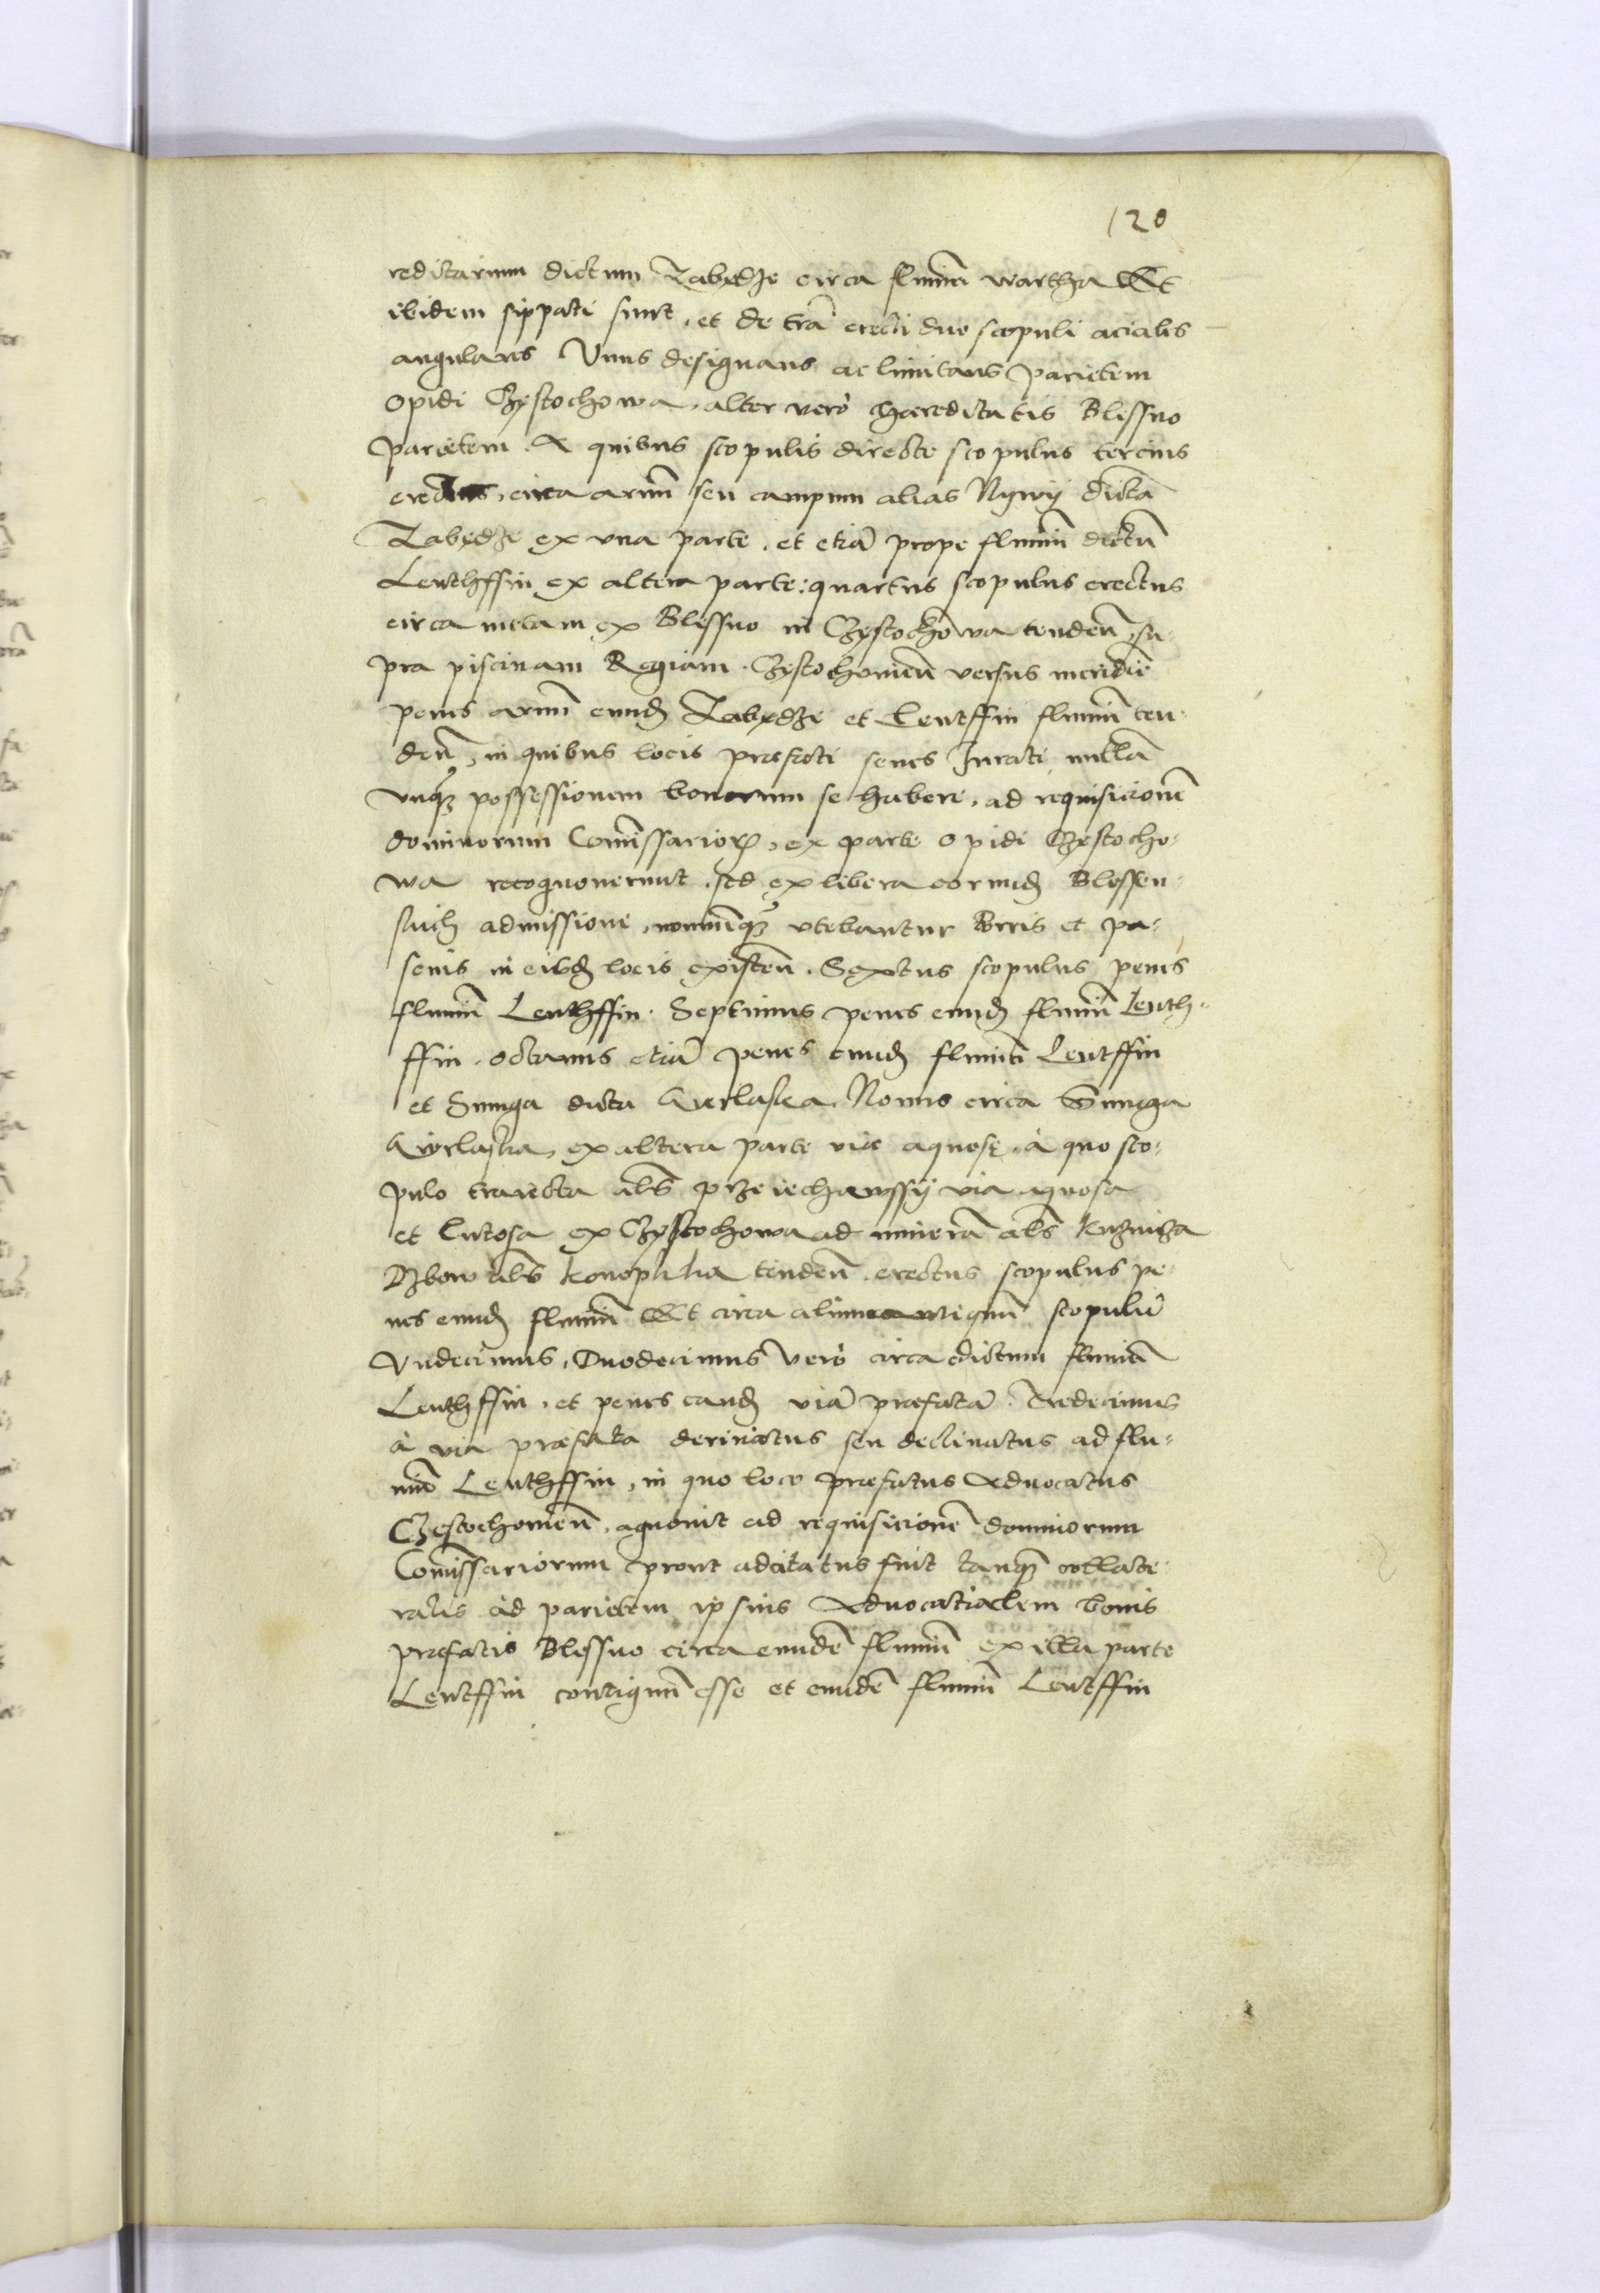 120
reditarium dictum Zabędze circa fluuiũ Wartha Et
ibidem sippati sunt, et de terrã erecti duo scopuli acialis
angulares Vnus designans ac limitans parietem
opidi Cżęstochowa, alter verò hæreditatis Blessno
parietem. A quibus scopulis directe scopulus tercius
erectus, circa aruũ seu campum alias Nywij dictã
Zabędze ex vna parte, et etiã prope fluuiũ dictũ
Lenthffin ex altera parte: quartus scopulus erectus
circa metam ex Blessno in Cżęstochowa tendeñ su-
pra piscinam Regiam. Cżęstochouieñ versus meridiẽ
penes aruũ eund Zabędze et Lentffin fluuiũ ten-
deñ, in quibus locis præfacti senes Jurati nullã
vnqz possessionem bonorum se habere, ad requisicionẽ
dominorum Comissarioꝝ, ex parte opidi Cżęstocho-
wa recognouerunt, sed ex libera eorund Blessen-
admissione, vtebantur et pa-
scuis in eisd locis existeñ. Sextus scopulus penes
fluuiũ Lenthffin. Septimus penes eund fluuiũ Lenth-
ffin. octauus etiã penes eund fluuiũ Lentffin
et Smuga dicta Nonus circa Smuga
ex altera parte viæ aquosę, à quo sco-
pulo traiecta als prżeiechawssij via aquosa
et lutosa ex Cżęstochowa ad minerã als kużnicża
Dżbow als konopiska tendeñ erectus scopulus pe-
nes eund fluuiũ Et circa alium antiquũ scopulũ
Vndecimus, Duodecimus verò circa dictum fluuiũ
Lenthffin, et penes eand viã præfatã. Tredecimus
à via præfata deriuatus seu declinatus ad flu-
uiũ Lenthffin, in quo loco præfatus Aduocatus
Cżęstochouieñ, agnouit ad requisicionẽ dominorum
Comissariorum prout adcitatus fuit tanqz collate-
ralis ad parietem ipsius Aduocatialem bonis
præfatis Blessno circa eundẽ fluuiũ ex illa parte
Lentffin contiguũ esse et eundẽ fluuiũ Lentffin